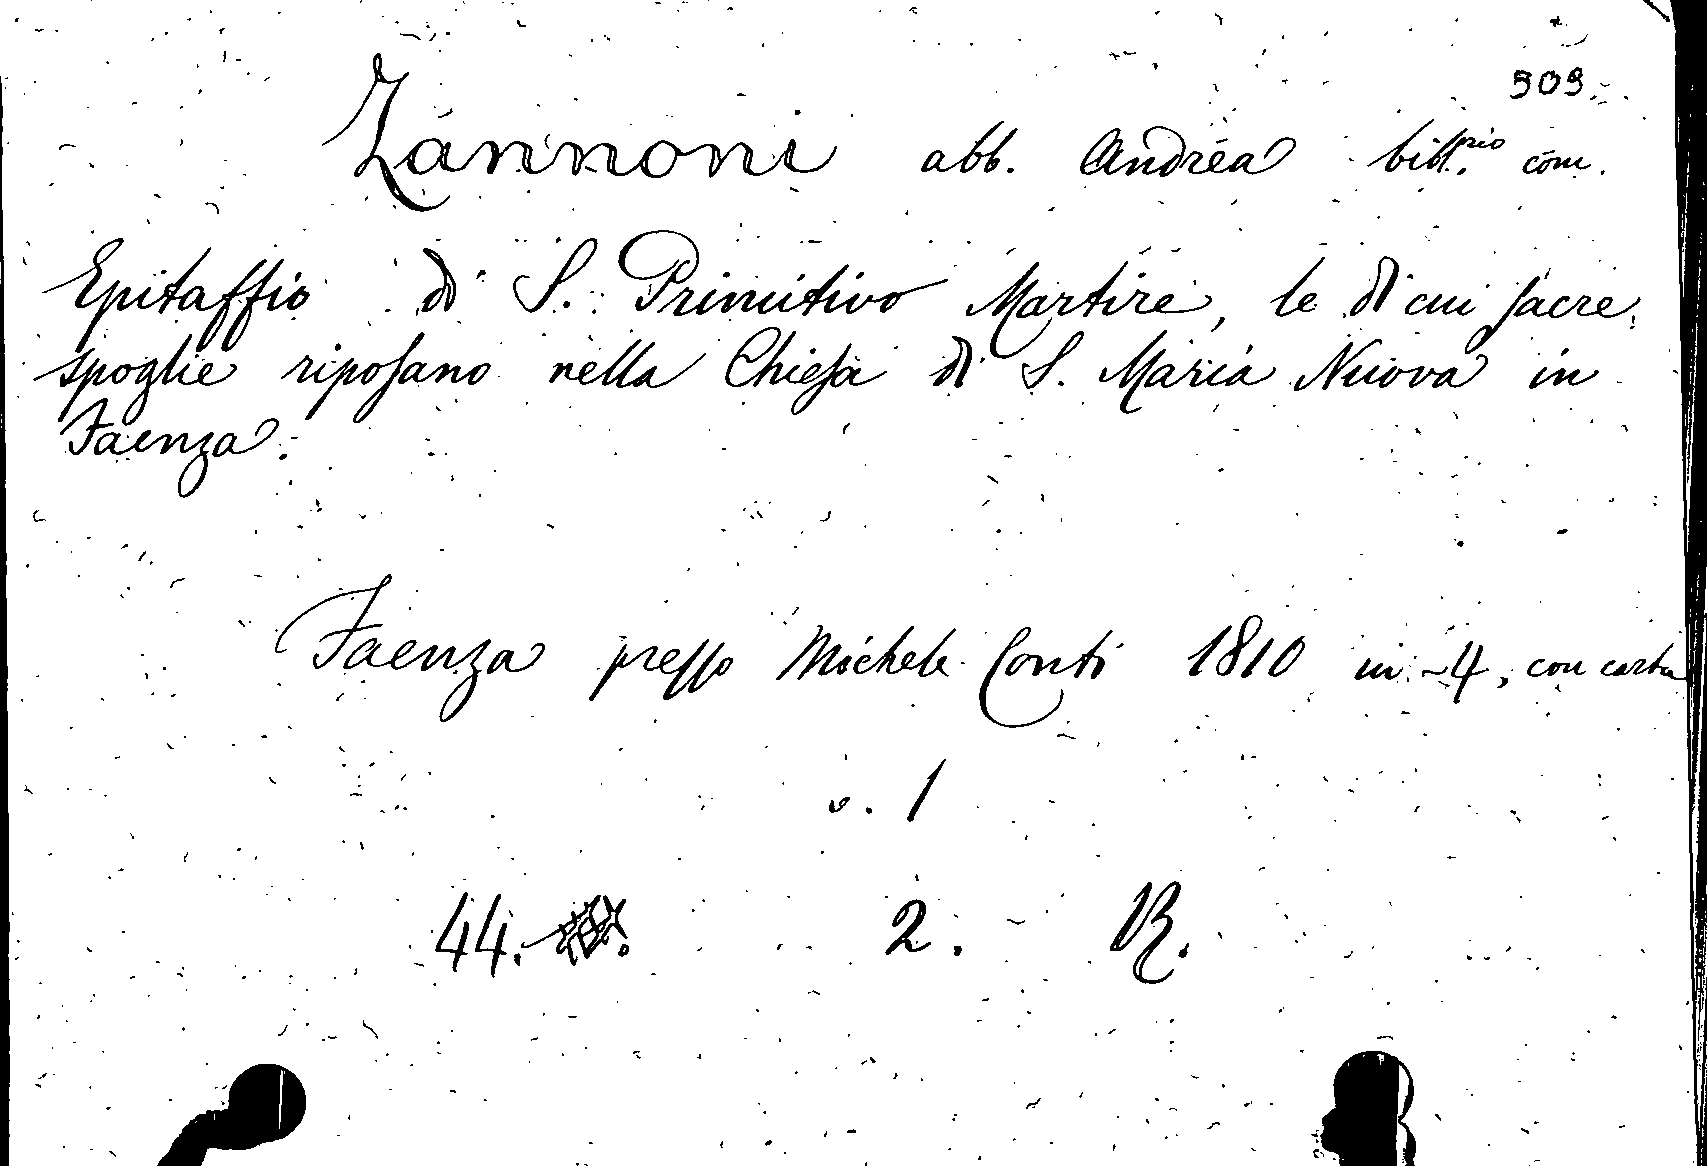 909.
Zannoni abb. Andrea bibl.rio com.
Epitaffio di S. Primitivo Martire, le di cui sacre
spoglie riposano nella Chiesa di S. Maria Nuova in
Faenza.
Faenza presso Michele Conti 1810 in-4, con carta
v. 1
44. 2. B.